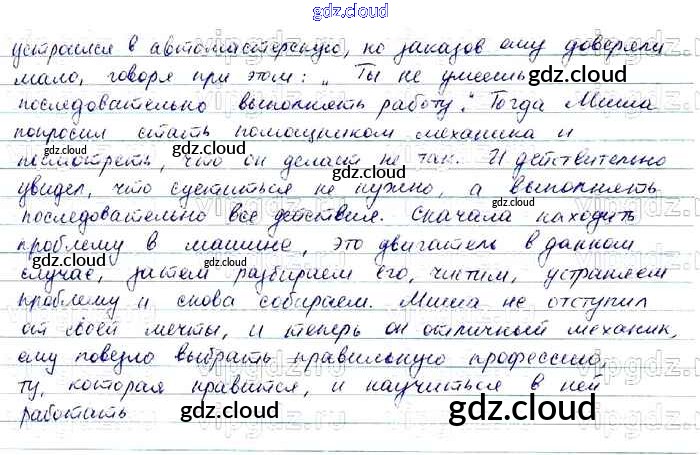 gdz.cloud
устроился в автомастерскую, но заказов ему доверяли
мало, говоря при этом: „Ты не умеешь
последовательно выполнять работу." Тогда Миша
попросил стать помощником механика и
посмотреть, что он делает не так. И действительно
увидел, что суетиться не нужно, а выполнять
последовательно все действия. Сначала находить
проблему в машине, это двигатель в данном
случае, затем разбираем его, чистим, устраняем
проблему и снова собираем. Миша не отступил
от своей мечты, и теперь он отличный механик,
ему повезло выбрать правильную профессию,
ту, которая нравится, и научиться в ней
работать